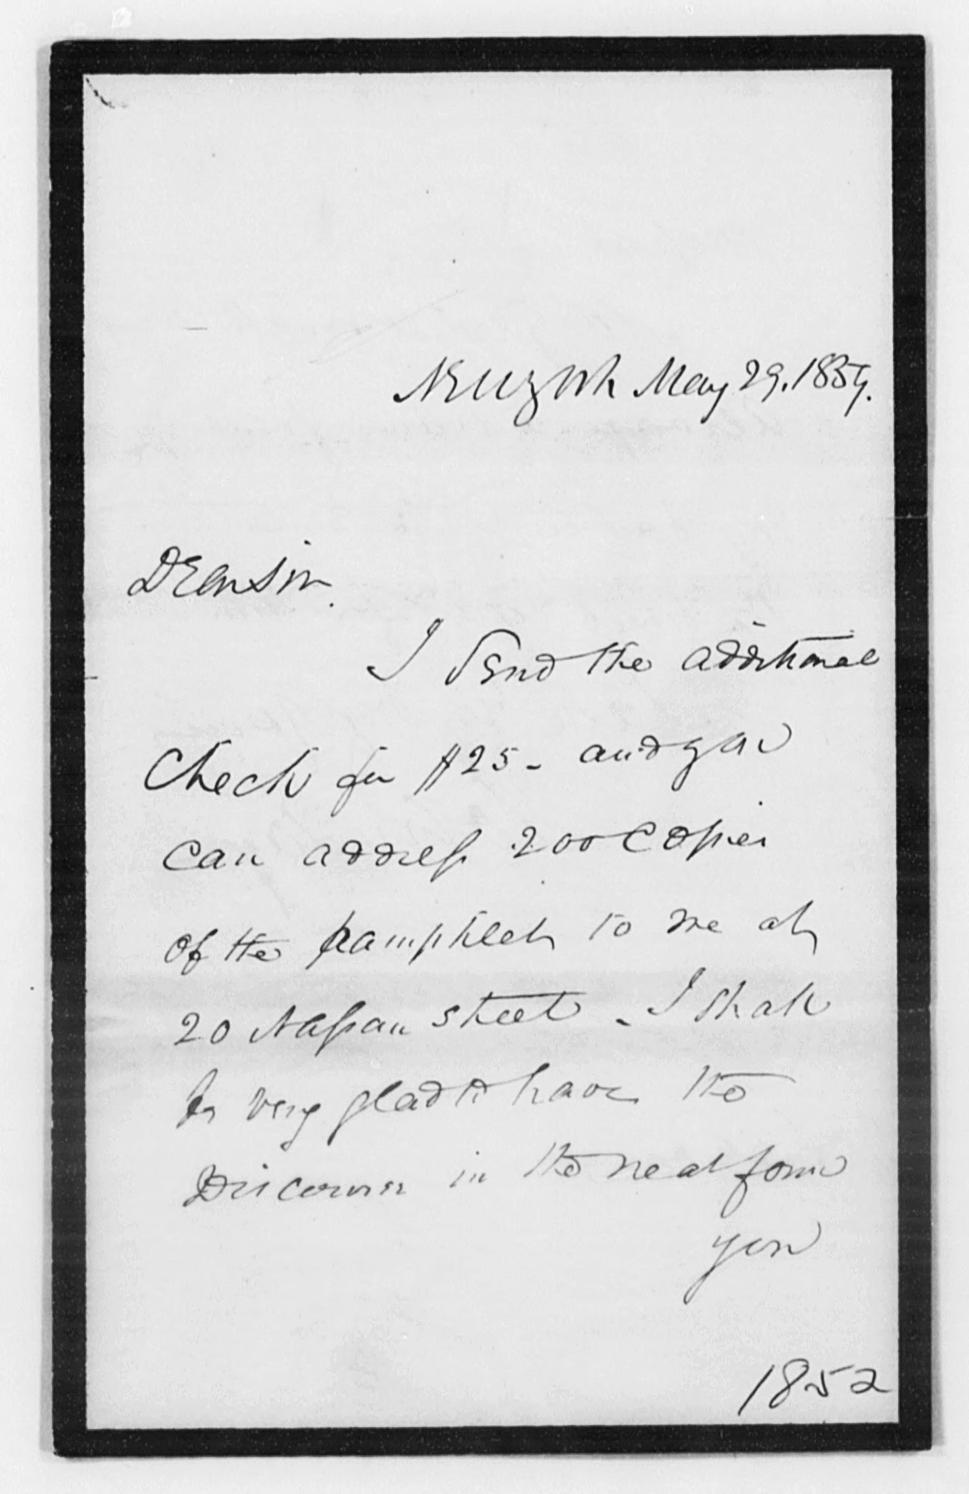 New York May 29. 1859.
Dear Sir.
I send the additional
Check for $25 - and you
can address 200 Copies
of the pamphlet to me at
20 Nassau street - I shall
be very glad to have the
Discourse in the neat form
you
1852